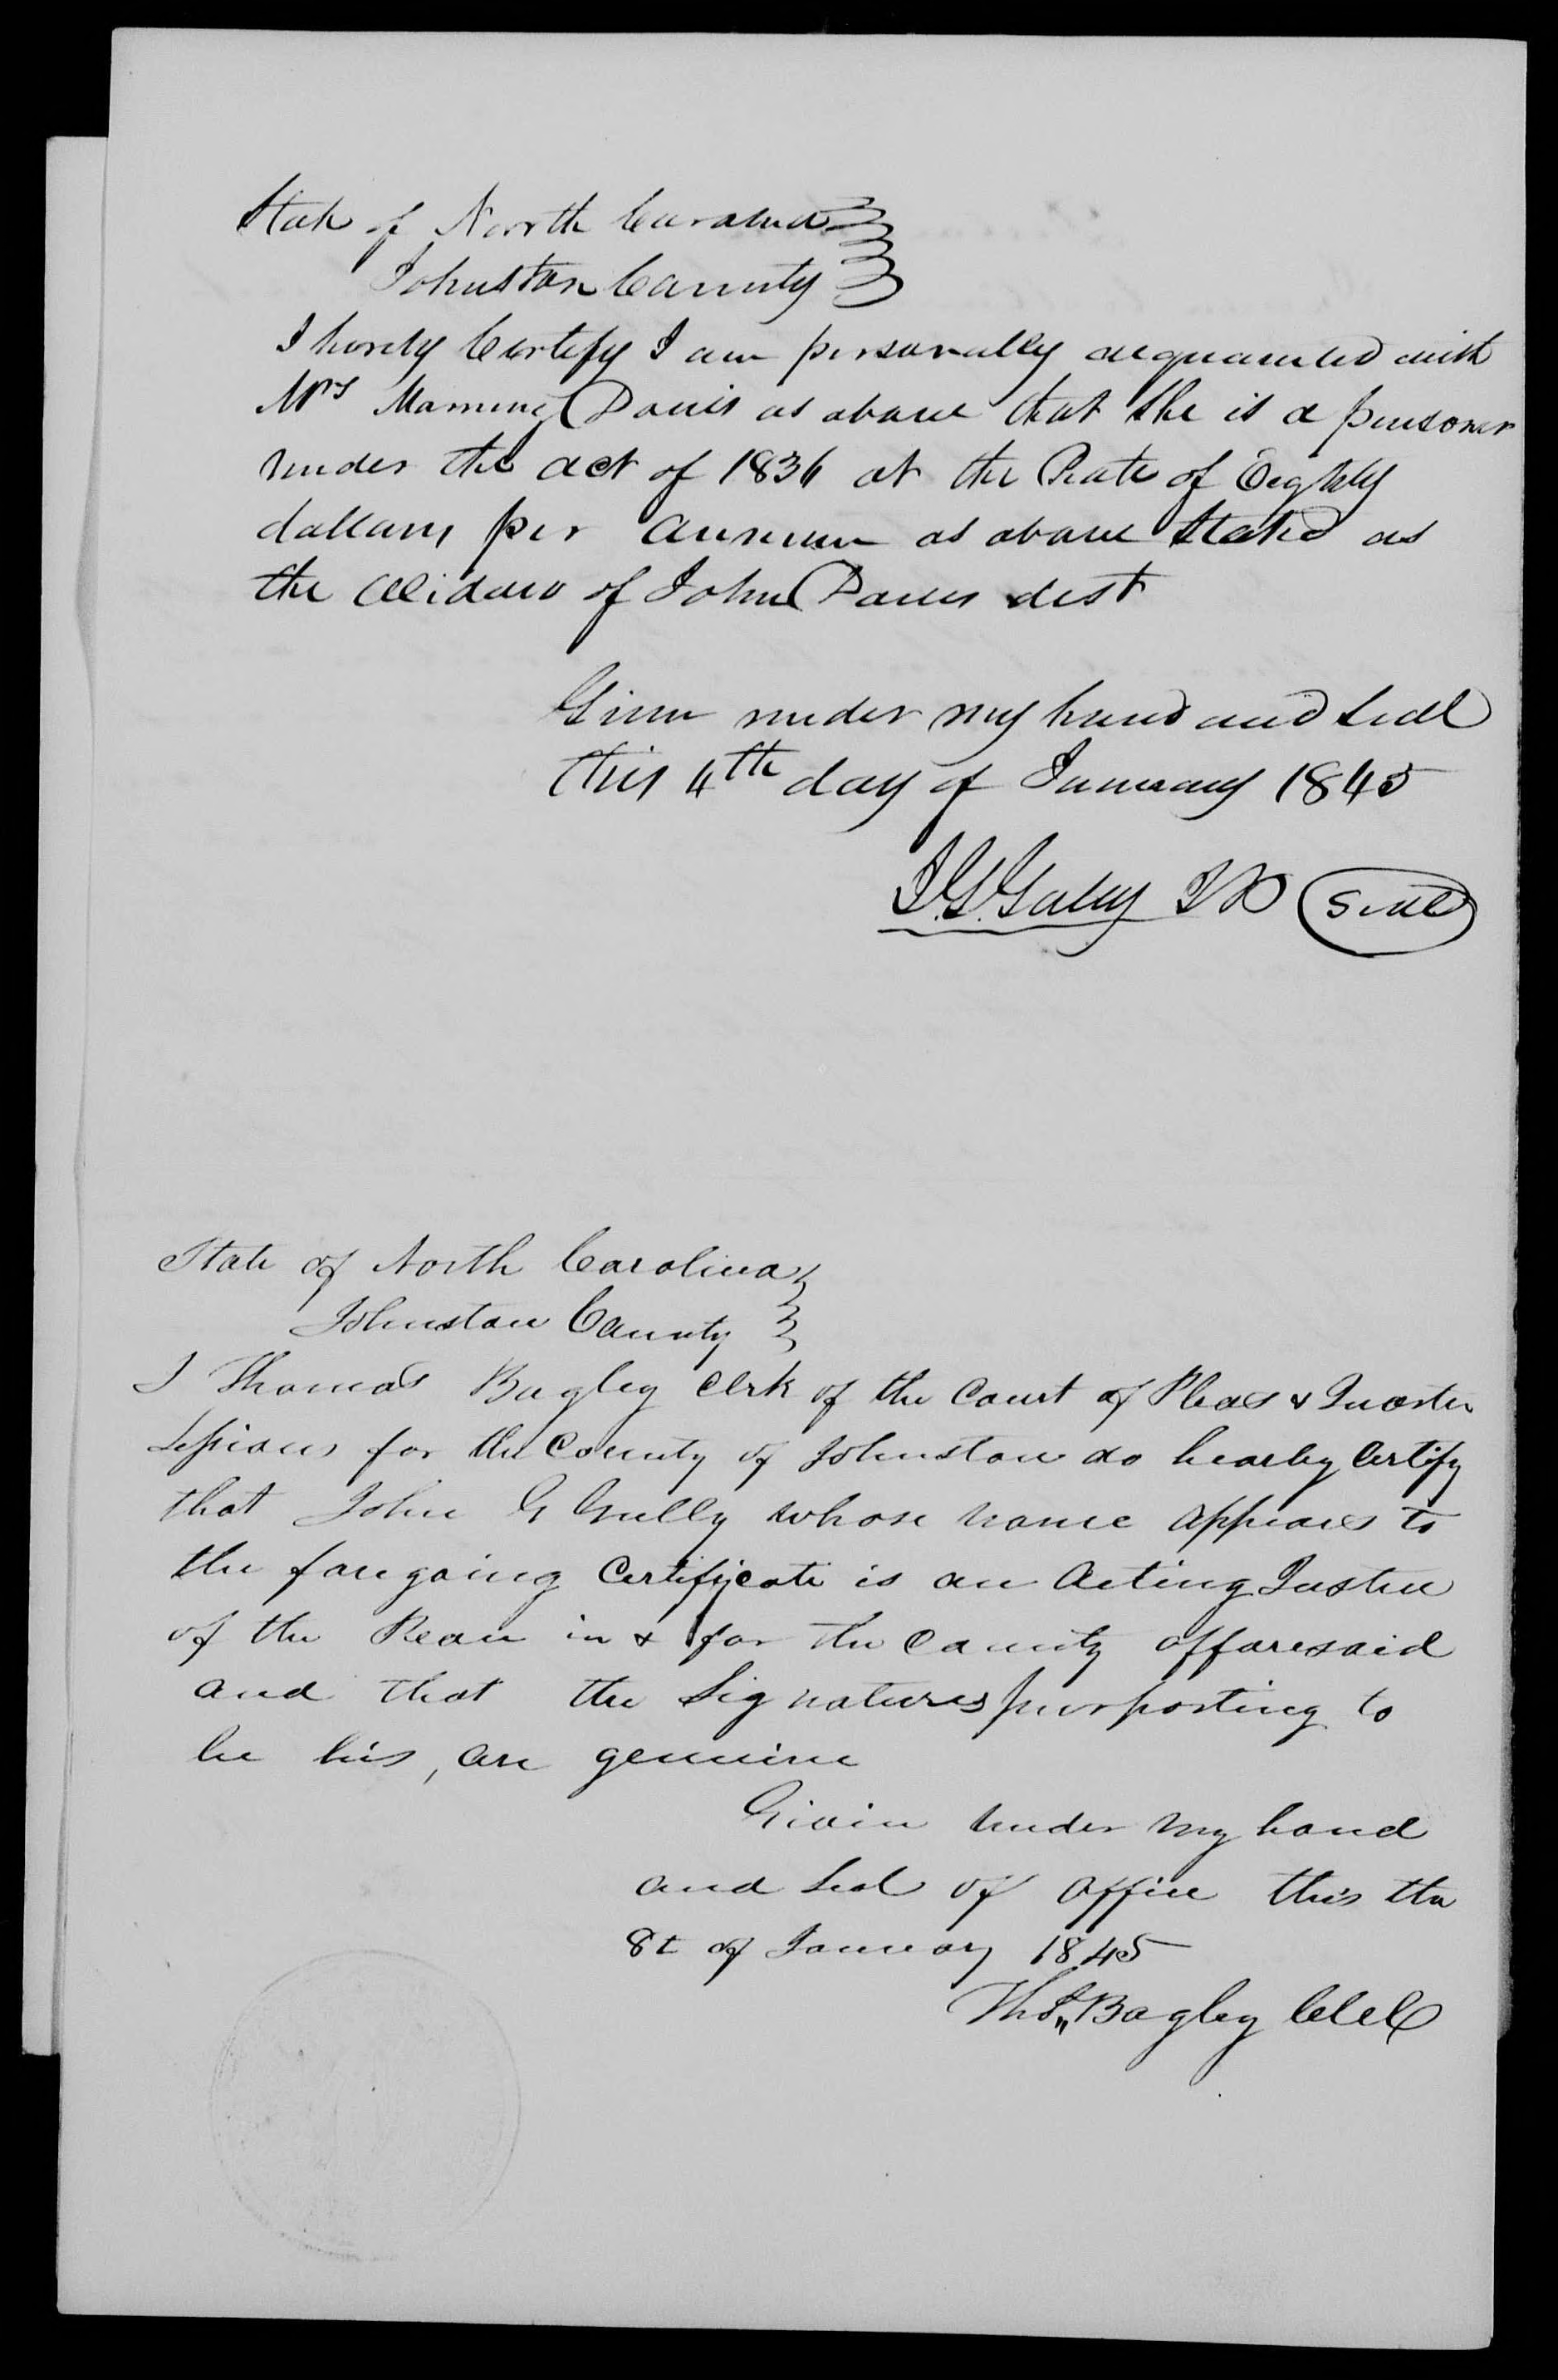 State of North Carolina
Johnston County
I herely Certify I am personally acquainted with
Mrs Mourning Davis as above that she is a pensoner
under the act of 1836 at the Rate of Eighty
dollars per Annum as above Stated as
the Widow of John Davis dest
Given under my hand and Seal
this 4th day of January 1845
J. G. Gully JP Seal
State of North Carolina
Johnston County
I Thomas Bagley Clrk of the Court of Pleas & Quarter
Sessions for the County of Johnston do hearby Certify
that John G Gully whose name appears to
the foregoing Certificate is an Acting Justice
of the Peace in & for the County afforesaid
and that the Signatures purporting to
be his, are genuine
Given under my hand
and Seal of office this the
8t of January 1845
Thos Bagley Clk